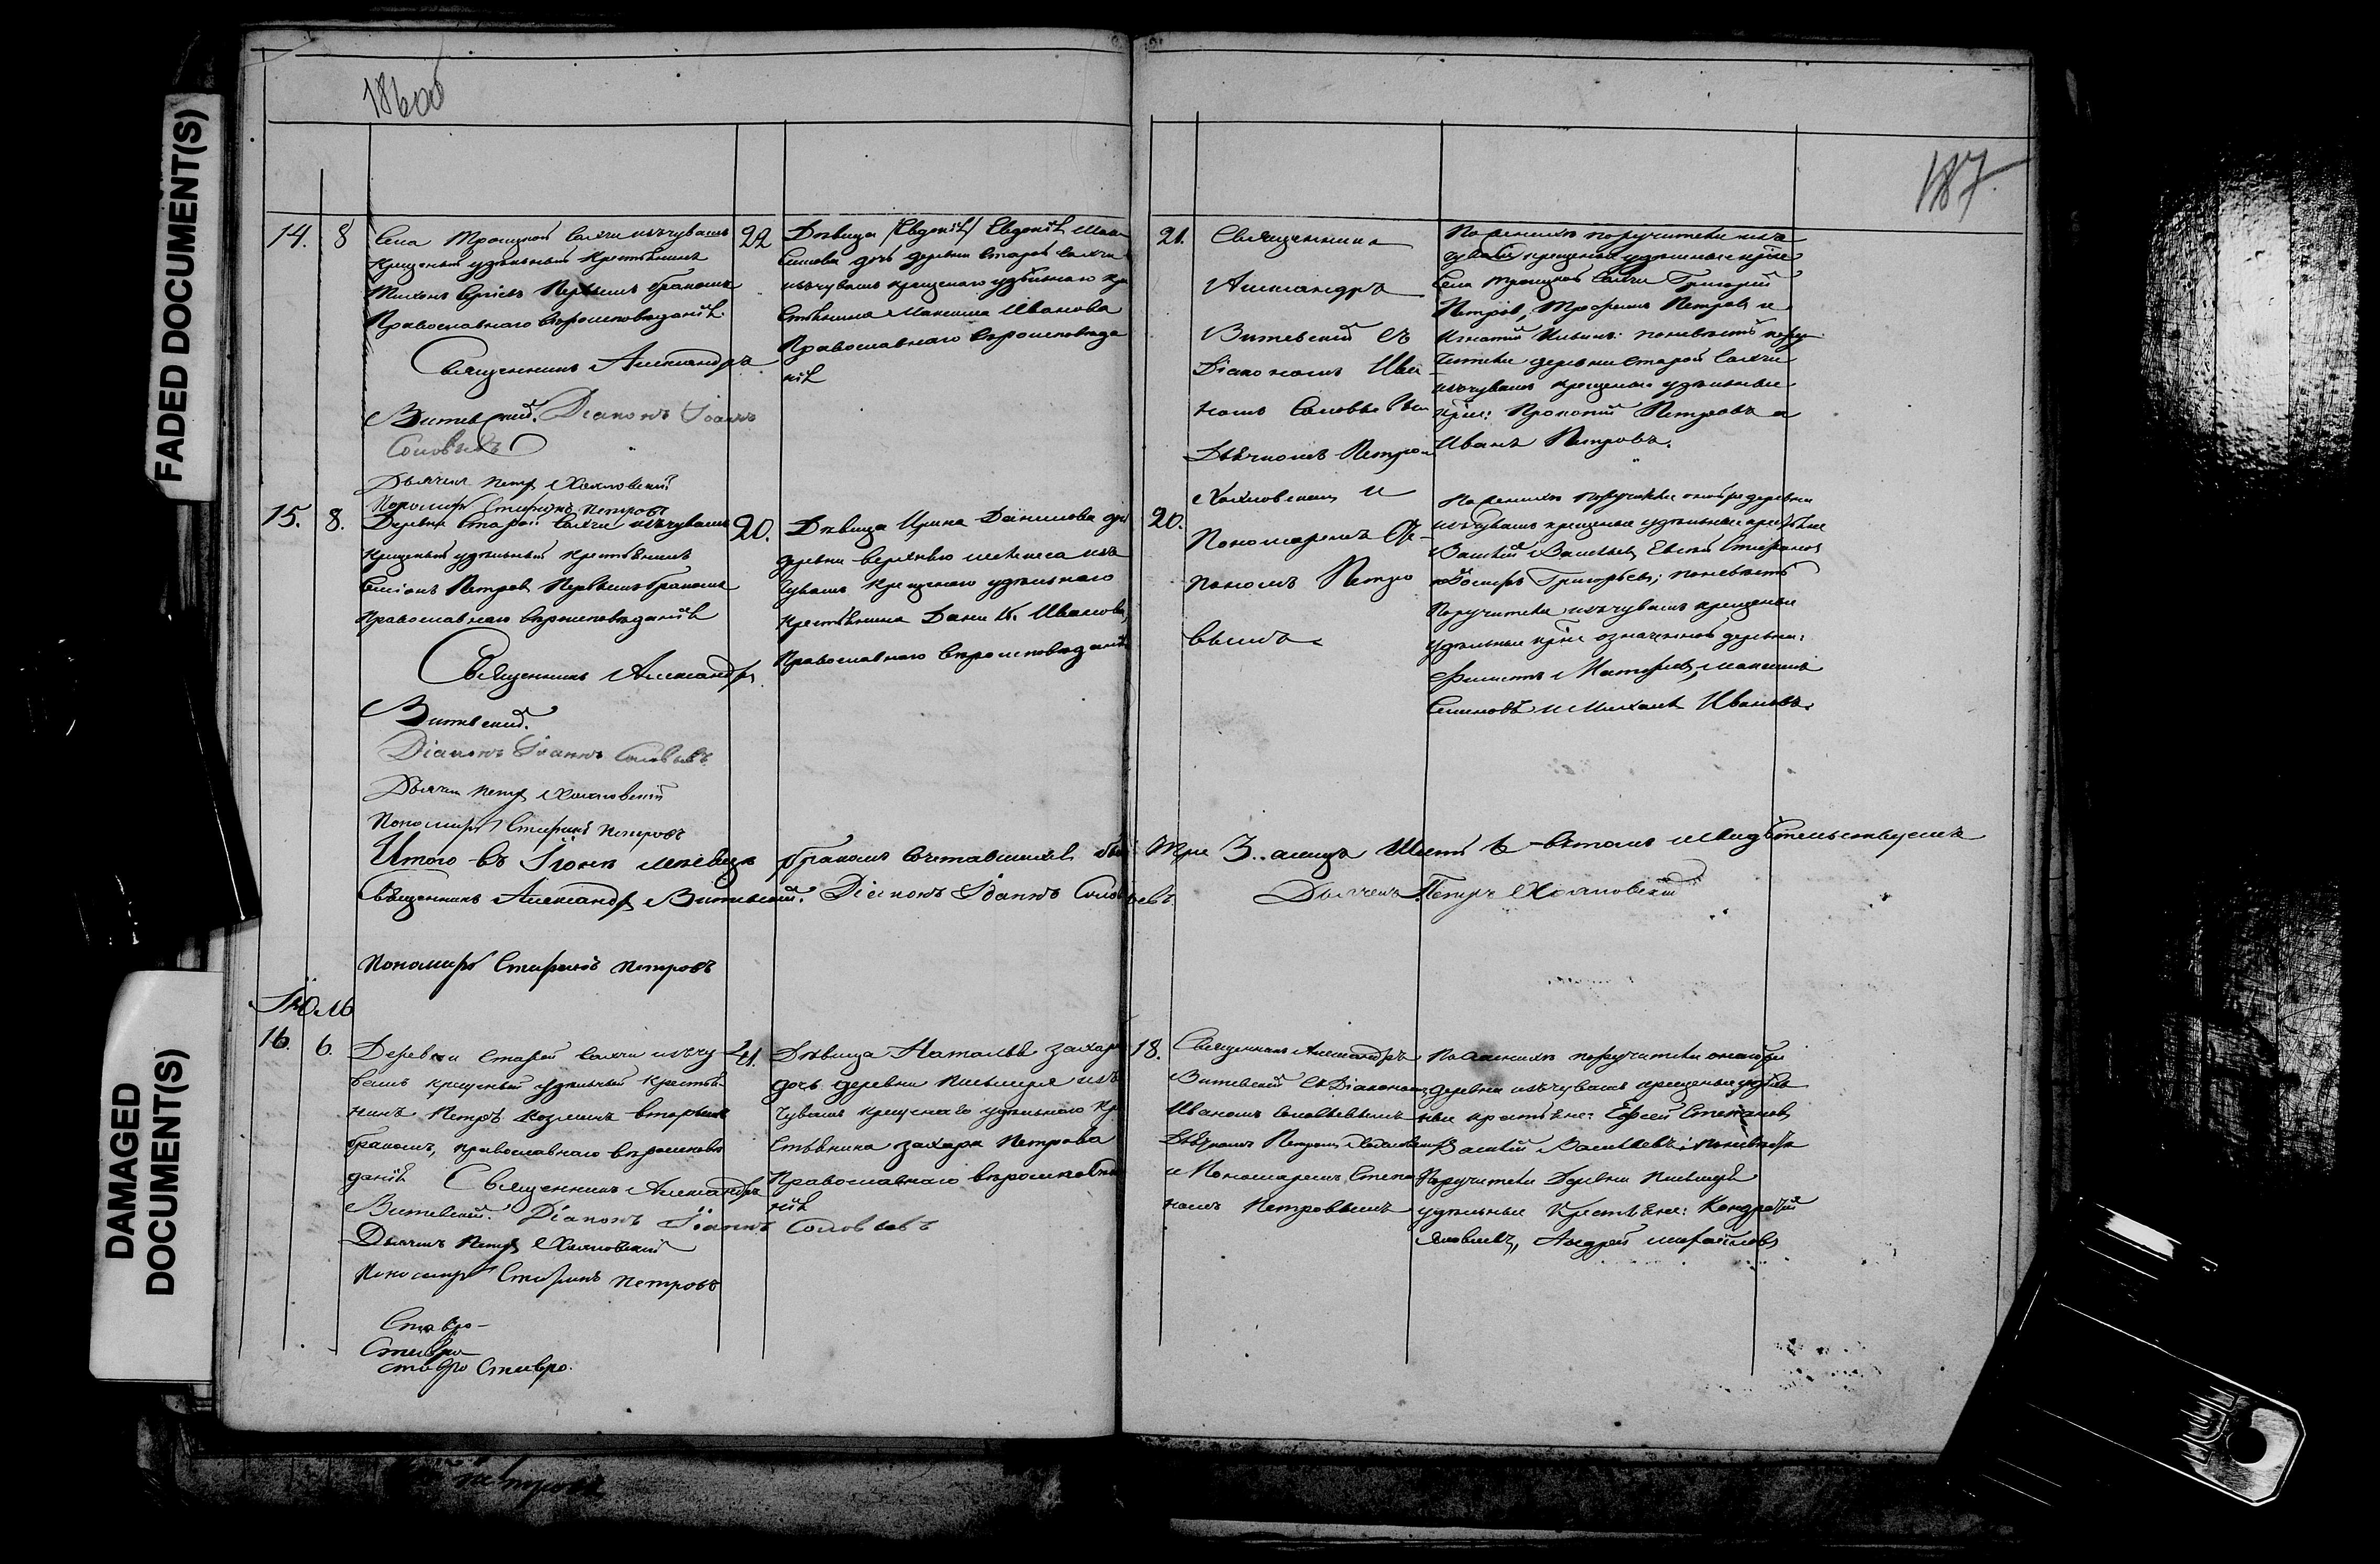 FADED DOCUMENT(S)
DAMAGED DOCUMENT(S)
186об
187.
14. 8
Села Троицкой Салчи изъ чувашъ
крещеный удѣльный крестьянинъ
Тихонъ Сергіевъ первымъ бракомъ
Православнаго вѣроисповѣданія.
Священникъ Александръ
Витевскій. Діаконъ Іоаннъ
Соловьевъ
Дьячекъ Петръ
Пономарь Стефанъ Петровъ
22
Дѣвица /Евдокія/ Евдокія Мак
симова дочь деревни Старой Салчи
изъ чувашъ крещенаго удѣльнаго кре
стьянина Максима Иванова
Православнаго вѣроисповѣда
нія
21.
Священникъ
Александръ
Витевскій съ
Діакономъ Ива
номъ Соловьевым
Дьячкомъ Петром
и
Пономаремъ Сте-
паномъ Петро
вымъ
По женихѣ поручители изъ
чувашъ крещеные удѣльные крес
Села Троицкой Салчи Григорій
Петровъ, Трофимъ Петровъ и
Игнатій Ильинъ: по невѣстѣ пору
чители деревни Старой Салчи
изъ чувашъ крещеные удѣльные
крес: Прокопій Петровъ и
Иванъ Петровъ.
15. 8.
Деревни Старой Салчи изъ чувашъ
крещеный удѣльный крестьянинъ
Симіонъ Петровъ первымъ бракомъ
православнаго вѣроисповѣданія
Священникъ Александръ
Витевскій.
Діаконъ Іоаннъ Соловьевъ
Дьячекъ Петръ
Пономарь Стефанъ Петровъ
20.
Дѣвица Ирина Данилова доч
деревни изъ
чувашъ крещенаго удѣльнаго
крестьянина Данила Иванова,
Православнаго вѣроисповѣданія
20.
По женихѣ поручители оной же деревни
изъ чувашъ крещеные удѣльные крестьяне
Василій Васильевъ, Стефановъ
Григорьевъ; по невѣстѣ
поручители изъ чувашъ крещеные
удѣльные крес означенной деревни:
Матфеевъ, Максимъ
Семеновъ и Михаилъ Ивановъ.
Итого въ Іюнѣ мѣсяцѣ бракомъ сочетавшихся было
три 3. а лицъ шесть 6 - въ томъ и свидѣтельствуемъ
Священникъ Александръ Витевскій. Діаконъ Іоаннъ Соловьевъ
Дьячекъ Петръ
Пономарь Стефанъ Петровъ
Іюль
16. 6.
Деревни Старой Салчи изъ чу
вашъ крещеный удѣльный крестья
нинъ Петръ Козминъ вторымъ
бракомъ, православнаго вѣроисповѣ
данія Священникъ Александръ
Витевскій. Діаконъ Іоаннъ Соловьевъ
Дьячекъ Петръ
Пономарь Стефанъ Петровъ
Ставро-
Ставро
ставро Ставро.
41.
Дѣвица Наталья Захар
дочь деревни изъ
чувашъ крещенаго удѣльнаго кре
стьянина Захара Петрова
Православнаго вѣроисповѣда
нія
18.
Священникъ Александръ
Витевскій съ Діаконом
Иваномъ Соловьевымъ
Дьячкомъ Петромъ
и Пономаремъ Степа
номъ Петровымъ
По женихѣ поручители оной же
деревни изъ чувашъ крещеные удѣль
ные крестьяне: Степановъ,
Василій Васильевъ; по невѣстѣ
поручители деревни
удѣльные крестьяне: Кондратій
Яковлевъ, Андрей
Петрова